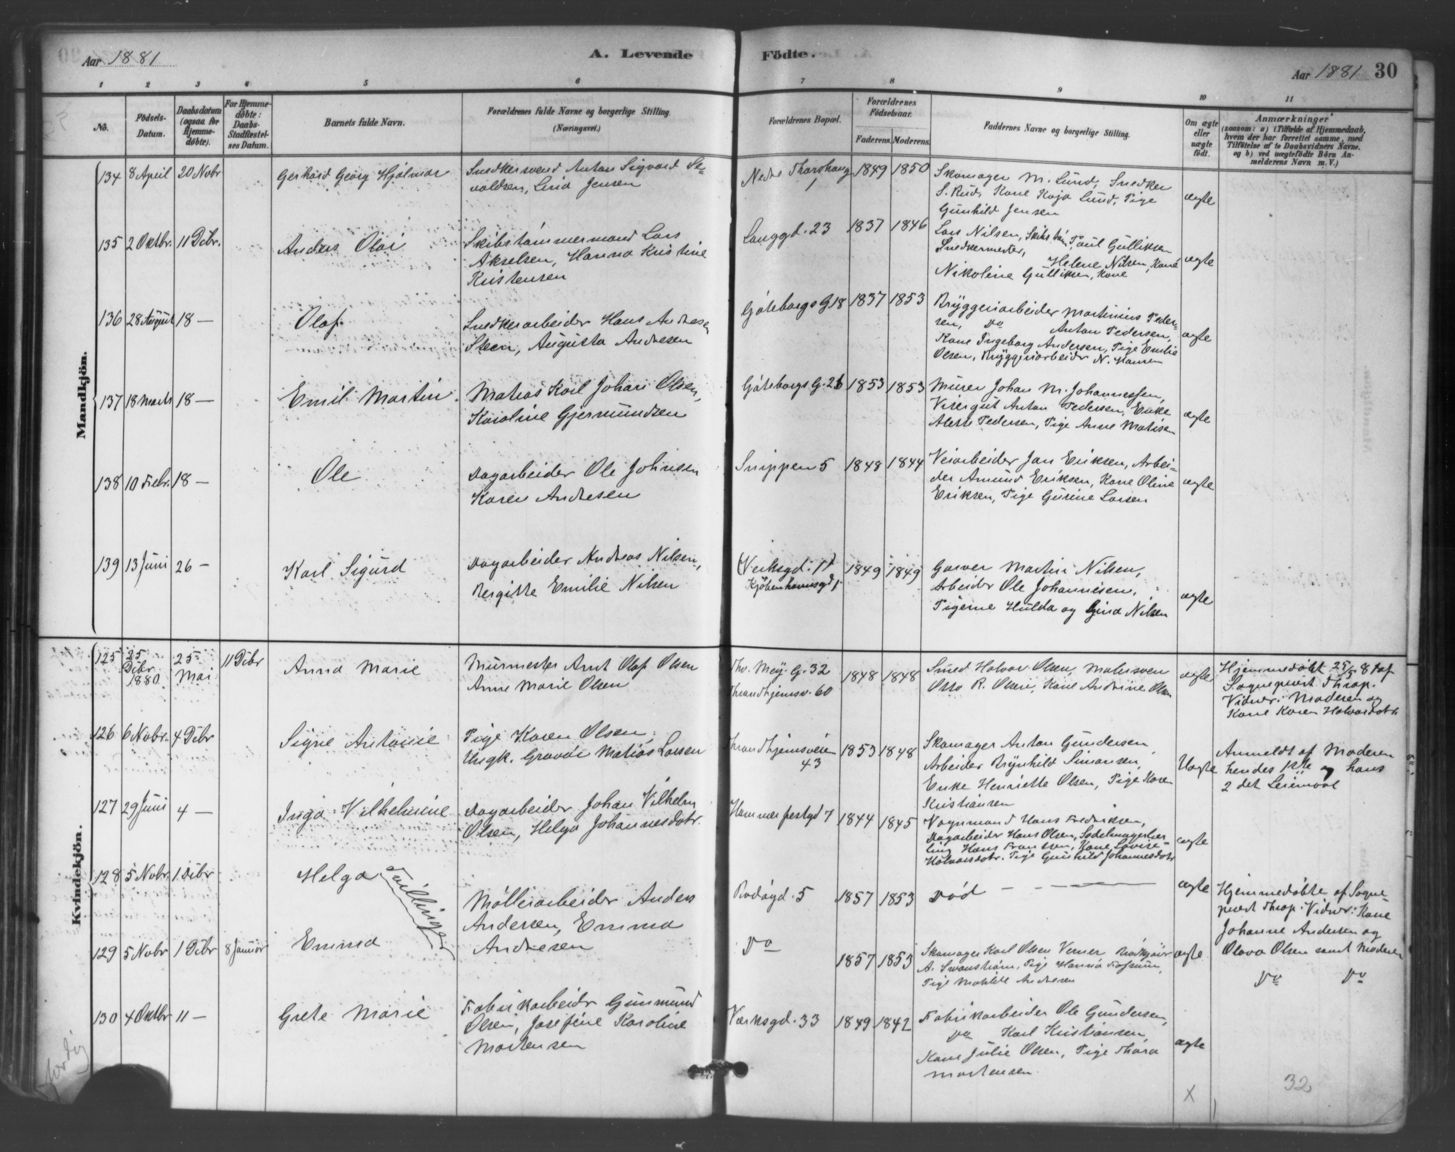 Aar 1881 A. Levende Fødte. Aar 1881 30
1 2 3 4 5 6 7 8 9 10 11
No. Fødsels-Datum. Daabsdatum (ogsaa for Hjemmedøbte). For Hjemmedøbte: Daabs-Stadfæstelses Datum. Barnets fulde Navn. Forældrenes fulde Navne og borgerlige Stilling (Næringsvei). Forældrenes Bopæl. Forældrenes Fødselsaar. Faderens. Moderens. Faddernes Navne og borgerlige Stilling. Om ægte eller uægte født. Anmærkninger
(saasom: a) Tilfælde af Hjemmedaab, hvem der har forrettet samme, med Tilføielse af to Daabsvidners Navne, og b) ved uægtefødte Børn Anmelderens Navn m. V.)
Mandkjön.
134 8 April 20 Novbr Gerhard Georg Hjalmar
Snedkersvend Anton Sigvard Se-
valdsen, Lina Jensen
Nedre Thorshaug 1 1849 1850
Skomager M. Lund, Snedker
S. Rud, Kone Kaja Lund, Pige
Gunhild Jensen
ægte
135 2 Oktbr. 11 Debr. Anders Olai
Skibstømmermand Lars
Akselsen, Hanna Kristine
Kristensen
Langgd. 23 1837 1846
Lars Nilsen, Paul Gulliksen
Snedkermester, Helene Nilsen, Kone
Nikoline Gulliksen, Kone
ægte
136 28 August 18 — Olaf
Snedkerarbeider Hans Andresen
Steen, Augusta Andresen
Gøteborgs G. 18 1837 1853
Bryggeriarbeider Martinius Peder-
sen, Do Anton Pedersen,
Kone Ingeborg Andersen, Pige Emilie
Olsen, Bryggeriarbeider N. Hansen
ægte
137 18 Marts 18 — Emil Martin
Matias Karl Johan Olsen,
Karoline Gjermundsen
Gøteborgs G. 26 1853 1853
Murer Johan M. Johannessen,
Visergut Anton Pedersen, Enke
Alette Pedersen, Pige Anne Matisen
ægte
138 10 Febr. 18 — Ole
Dagarbeider Ole Johnsen
Karen Andresen
Snippen 5 1848 1844
Veiarbeider Jan Eriksen, Arbei-
der Amund Eriksen, Kone Oline
Eriksen, Pige Gurine Larsen
ægte
139 13 Juni 26 — Karl Sigurd
Dagarbeider Andreas Nilsen,
Bergitte Emilie Nilsen
(Verksgd. 11)
Kjøbenhavnsgd 1849 1849
Garver Martin Nilsen,
Arbeider Ole Johannesen,
Pigerne Hulda og Gina Nilsen
ægte
Kvindekjön.
125 25 Debr 1880 25 Mai 11 Debr Anna Marie
Murmester Arnt Olaf Olsen
Anne Marie Olsen
Thv. Mey. G. 32
Thrandhjemsv. 60 1848 1848
Smed Halvor Olsen, Malersven
Otto R. Olsen, Kone Andrine Olsen
ægte
Hjemmedøbt 25/5 81 af
Sognepræst Thrap.
Vidner: Moderen og
Kone Karen Halvorsdatr
126 6 Novbr. 4 Debr Signe Antonie
Pige Karen Olsen,
Ungk. Gravør Matias Larsen
Thrandhjemsveien
43 1853 1848
Skomager Anton Gundersen,
Arbeider Brynhild Simonsen,
Enke Henriette Olsen, Pige Karen
Kristiansen
Uægte
Anmeldt af Moderen
hendes 1ste, hans
2 det Leiermaal
127 29 Juni 4 — Inga Vilhelmine
Dagarbeider Johan Vilhelm
Olsen, Helga Johannesdatr.
Hammerfestgd 7 1844 1845
Vognmand Hans Fredriksen,
Dagarbeider Hans Olsen, Sadelmagerlær-
ling Hans Franssen, Kone Lovise
Halvorsdatr. Pige Gunhild Johannesdatr
ægte
128 5 Novbr. 1 Debr Helga
Tvillinger
Møllerarbeider Anders
Andersen, Emma
Andresen
Bodøgd. 5 1857 1853
Død — — —
ægte
Hjemmedøbte af Sogne-
præst Thrap. Vidner: Kone
Johanne Andersen og
Olava Olsen samt Moderen
129 5 Novbr 1 Debr 8 Januar Emma
Do 1857 1853
Skomager Karl Olsen Verner
A. Svanstrøm, Pige Hanna
Pige Matilde Andresen
ægte
Do Do
130 4 Oktbr 11 — Grete Marie
Fabrikarbeidr Gunmund
Olsen, Josefine Karoline
Mortensen
Værksgd. 33 1849 1842
Fabrikarbeider Ole Gundersen,
Do Karl Kristiansen,
Kone Julie Olsen, Pige Thora
Mortensen.
ægte
X
32